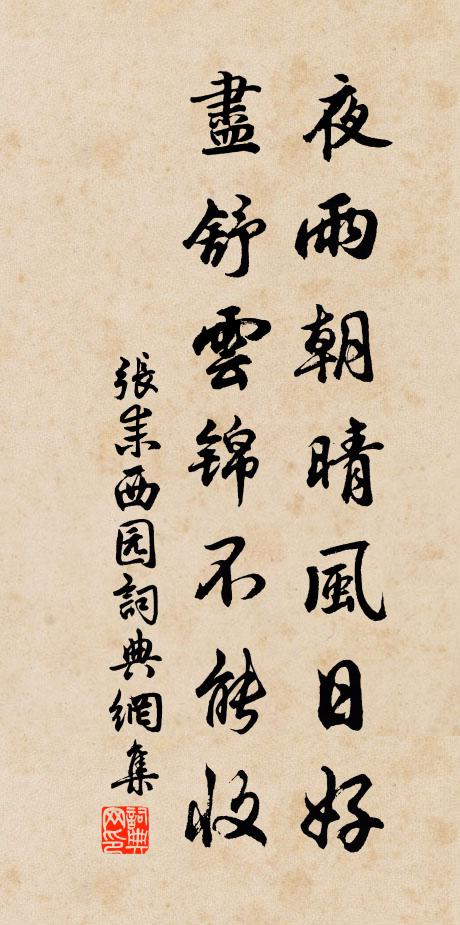 夜雨朝晴風日好
盡舒雲錦不能收
張耒西园詞典網集
詞典网印